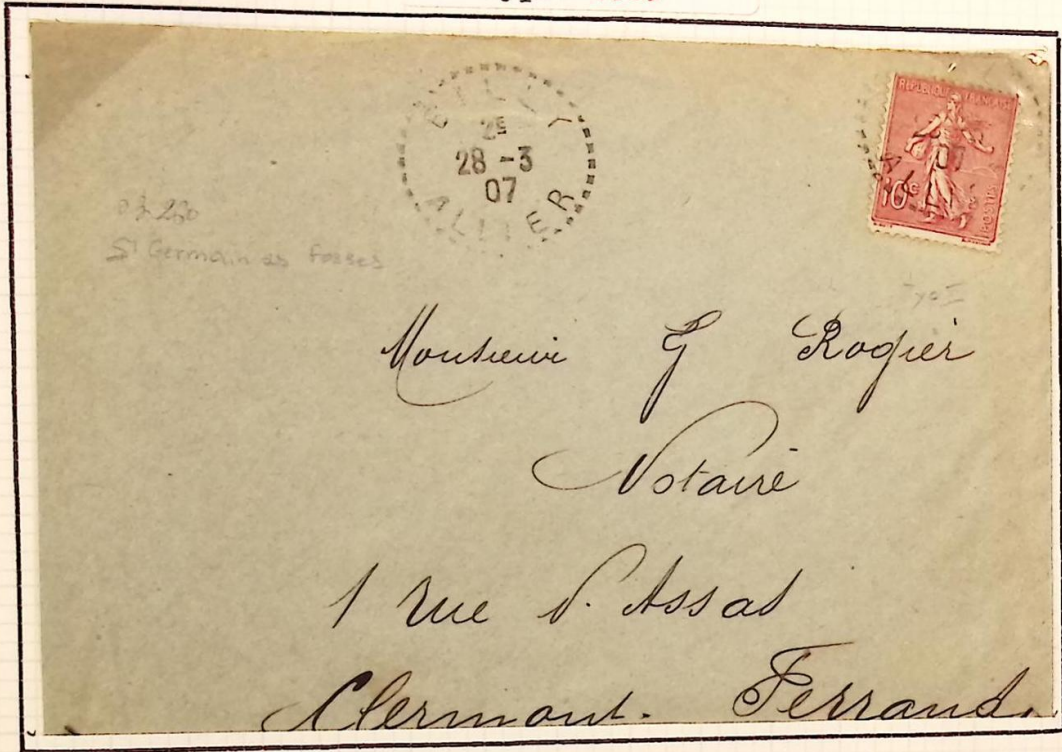 BILLY
2E
28 -3
07
ALLIER
REPUBLIQUE FRANÇAISE
07
AL
10c
POSTES
03 260
St Germain des Fossés
Type I
Monsieur G Rogier
Notaire
1 rue d'Assas
Clermont-Ferrand.